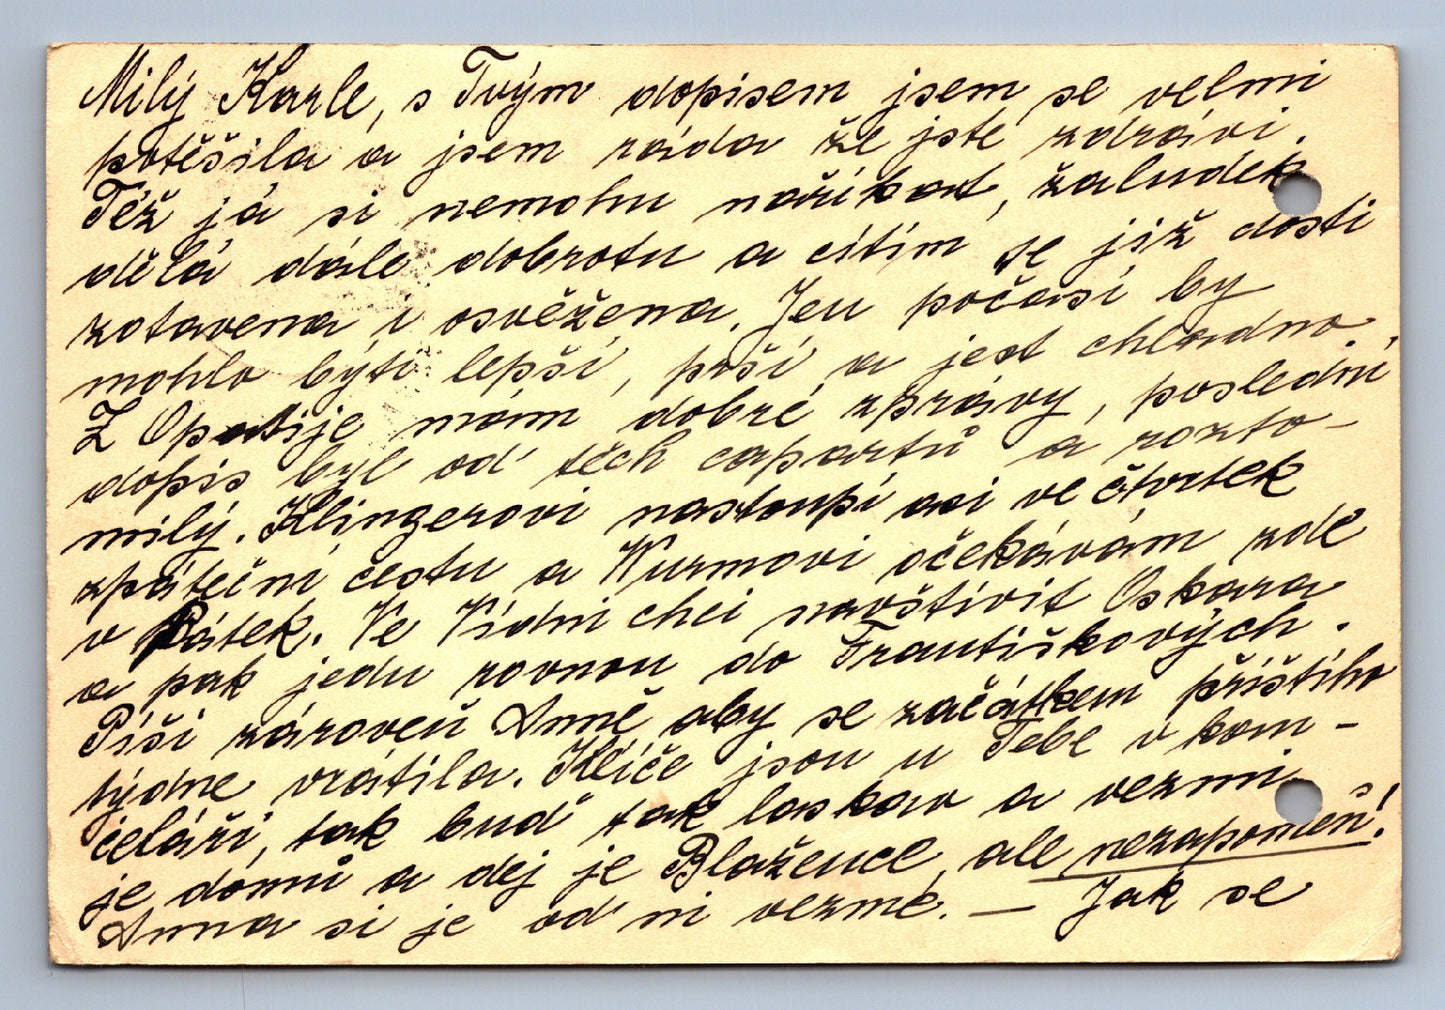 Milý Karle, s Tvým dopisem jsem se velmi
potěšila a jsem ráda že jste zdrávi.
Též já si nemohu naříkat, žaludek
dělá dále dobrotu a cítím se již dosti
zotavena i osvěžena. Jen počasí by
mohlo býti lepší, prší a jest chladno.
Z Opatije mám dobré zprávy, poslední
dopis byl od těch capartů a rozto-
milý. Klingerovi nastoupí asi ve čtvrtek
zpáteční cestu a Wurmovi očekávám zde
v Pátek. Ve Vídni chci navštívit Oskara
a pak jedu rovnou do Františkových.
Píši zároveň Anně aby se začátkem příštího
týdne vrátila. Klíče jsou u Tebe v kan-
celáři, tak buď tak laskav a vezmi
je domů a dej je Blažence, ale nezapomeň!
Anna si je od ní vezme. — Jak se